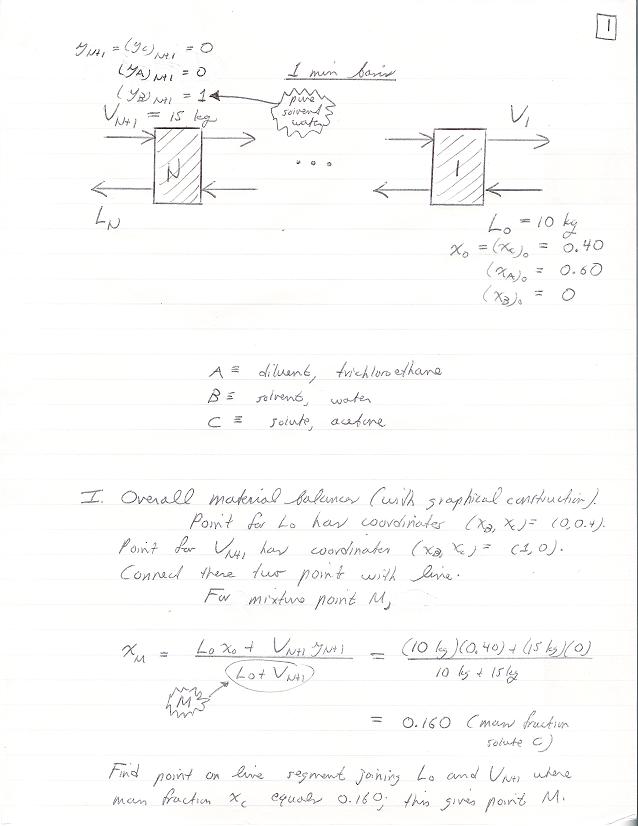 1
y_{N+1} = (y_C)_{N+1} = 0
(y_A)_{N+1} = 0
(y_B)_{N+1} = 1
V_{N+1} = 15 kg
1 min basis
pure
solvent
water
N
...
1
V_1
L_N
L_0 = 10 kg
x_0 = (x_C)_0 = 0.40
(x_A)_0 = 0.60
(x_B)_0 = 0
A ≡ diluent, trichloroethane
B ≡ solvent, water
C ≡ solute, acetone
I. Overall material balances (with graphical construction).
Point for L_0 has coordinates (x_B, x_C) = (0,0.4).
Point for V_{N+1} has coordinates (x_B, x_C) = (1,0).
Connect these two point with line.
For mixture point M,
x_M = (L_0 x_0 + V_{N+1} y_{N+1}) / (L_0 + V_{N+1}) = ((10 kg)(0.40) + (15 kg)(0)) / (10 kg + 15 kg)
M
= 0.160 (mass fraction
solute C)
Find point on line segment joining L_0 and V_{N+1} where
mass fraction x_C equals 0.160; this gives point M.